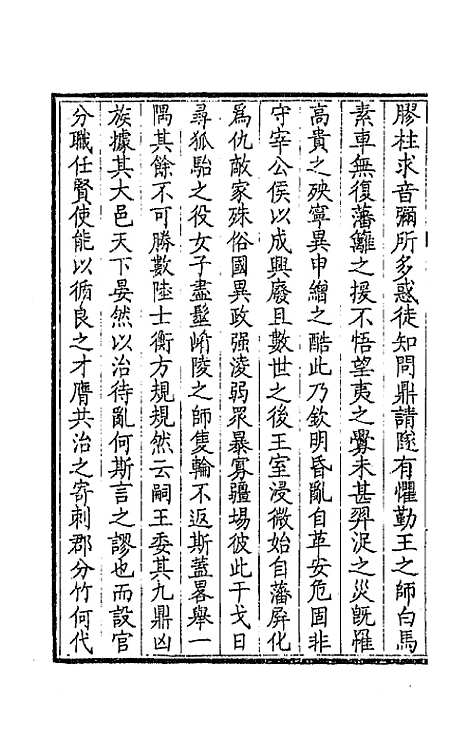 膠柱求音彌所多惑徒知問鼎請隧有懼勤王之師白馬
素車無復藩籬之援不悟望夷之釁未甚羿浞之災旣罹
高貴之殃寧異申繒之酷此乃欽明昏亂自革安危固非
守宰公侯以成興廢且數世之後王室浸微始自藩屏化
爲仇敵家殊俗國異政强淩弱眾暴寡疆場彼此干戈日
尋狐駘之役女子盡髽崤陵之師隻輪不返斯蓋畧舉一
隅其餘不可勝數陸士衡方規規然云嗣王委其九鼎凶
族據其大邑天下晏然以治待亂何斯言之謬也而設官
分職任賢使能以循良之才膺共治之寄刺郡分竹何代